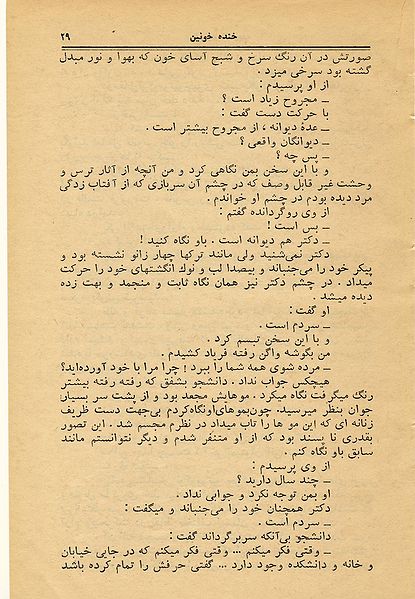 خنده خونین ۲۹
صورتش در آن رنگ سرخ و شبح آسای خون که بهوا و نور مبدل
گشته بود سرخی میزد .
از او پرسیدم :
ــ مجروح زیاد است ؟
با حرکت دست گفت :
ــ عدهٔ دیوانه ، از مجروح بیشتر است .
ــ دیوانگان واقعی ؟
ــ پس چه ؟
و با این سخن بمن نگاهی کرد و من آنچه از آثار ترس و
وحشت غیر قابل وصف که در چشم آن سربازی که از آفتاب زدگی
مرد دیده بودم در چشم او خواندم .
از وی روگردانده گفتم :
ــ بس است !
ــ دکتر هم دیوانه است . باو نگاه کنید !
دکتر نمی‌شنید ولی مانند ترکها چهار زانو نشسته بود و
پیکر خود را می‌جنباند و بیصدا لب و نوك انگشتهای خود را حرکت
میداد . در چشم دکتر نیز همان نگاه ثابت و منجمد و بهت زده
دیده میشد .
او گفت :
ــ سردم است .
و با این سخن تبسم کرد .
من بگوشه واگن رفته فریاد کشیدم .
ــ مرده شوی همه شما را ببرد ! چرا مرا با خود آورده‌اید؟
هیچکس جواب نداد . دانشجو بشفق که رفته رفته بیشتر
رنگ میگرفت نگاه میکرد . موهایش مجعد بود و از پشت سر بسیار
جوان بنظر میرسید. چون‌بموهای‌اونگاه‌کردم بی‌جهت دست ظریف
زنانه ای که این مو ها را تاب میداد در نظرم مجسم شد . این تصور
بقدری نا پسند بود که از او متنفر شدم و دیگر نتوانستم مانند
سابق باو نگاه کنم .
از وی پرسیدم :
ــ چند سال دارید ؟
او بمن توجه نکرد و جوابی نداد .
دکتر همچنان خود را می‌جنباند و میگفت :
ــ سردم است .
دانشجو بی‌آنکه سربرگرداند گفت:
ــ وقتی فکر میکنم ... وقتی فکر میکنم که در جایی خیابان
و خانه و دانشکده وجود دارد ... گفتی حرفش را تمام کرده باشد